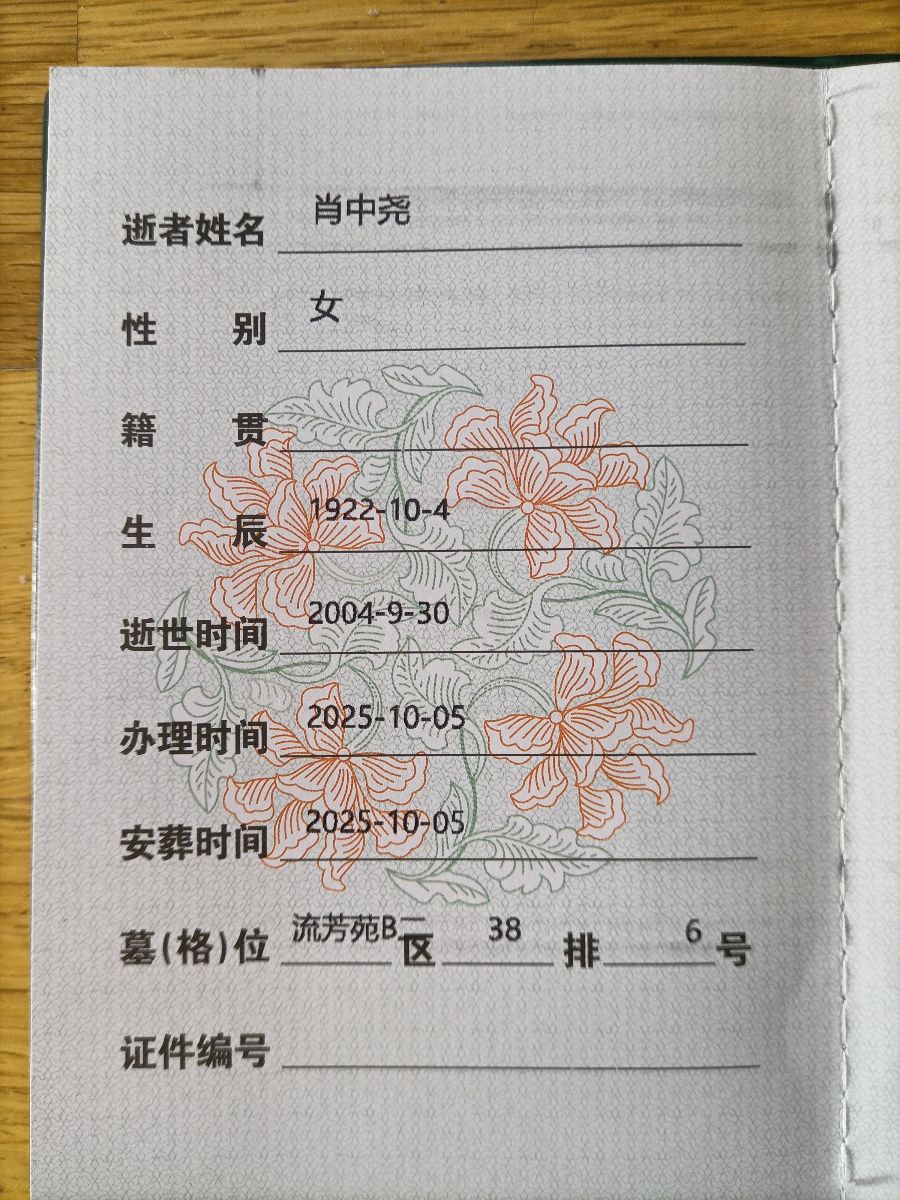 逝者姓名 肖中尧
性别 女
籍贯
生辰 1922-10-4
逝世时间 2004-9-30
办理时间 2025-10-05
安葬时间 2025-10-05
墓(格)位 流芳苑B二区 38 排 6 号
证件编号